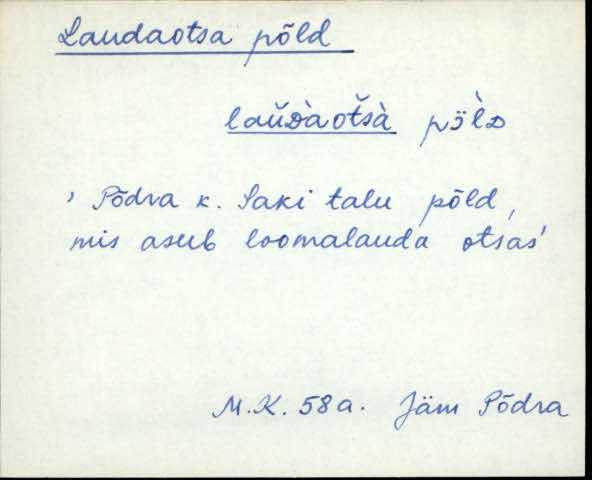 Laudaotsa põld
lau̬ᴅàot̆sà pɜ̈̀lᴅ
' Põdra k. Saki talu põld,
mis asub loomalauda otsas'
M.K. 58 a. Jäm Põdra